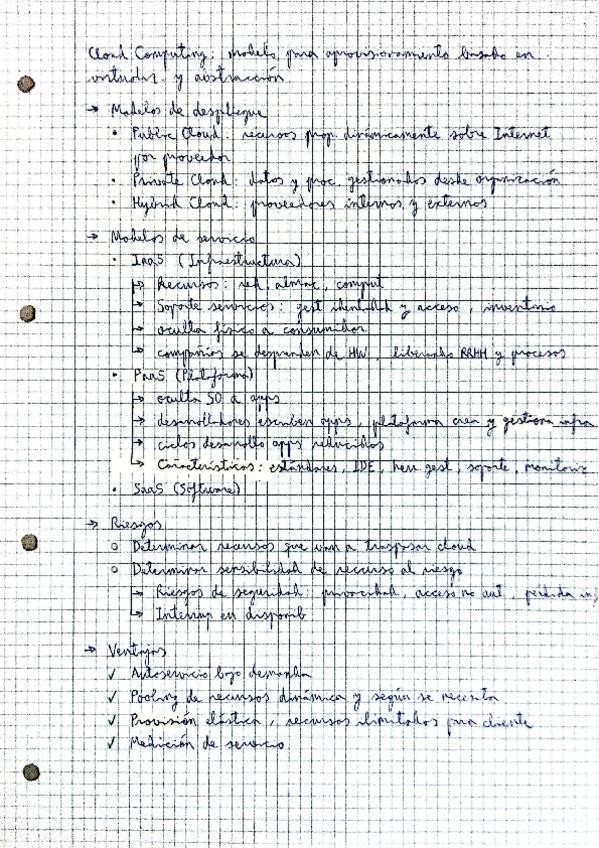 Cloud Computing: modelo para aprovisionamiento basado en
virtualiz. y abstracción
→ Modelos de despliegue
• Public Cloud: recursos prop. dinámicamente sobre Internet
por proveedor
• Private Cloud: datos y proc. gestionados desde organización
• Hybrid Cloud: proveedores internos y externos
→ Modelos de servicio
• IaaS (Infraestructura)
→ Recursos: red, almac, comput
→ Soporte servicios: gest identidad y acceso, inventario
→ oculta físico a consumidor
→ compañías se desprenden de HW, liberando RRHH y procesos
• PaaS (Plataforma)
→ oculta SO a apps
→ desarrolladores escriben apps, plataforma crea y gestiona infra
→ ciclos desarrollo apps reducidos
→ Características: estándares, IDE, herr gest, soporte, monitoriz
• SaaS (Software)
→ Riesgos
○ Determinar recursos que van a traspasar cloud
○ Determinar sensibilidad de recurso al riesgo
→ Riesgos de seguridad: privacidad, acceso no aut, pérdida inf
→ Interrup en disponib
→ Ventajas
✓ Autoservicio bajo demanda
✓ Pooling de recursos dinámica y según se necesita
✓ Provisión elástica, recursos ilimitados para cliente
✓ Medición de servicio